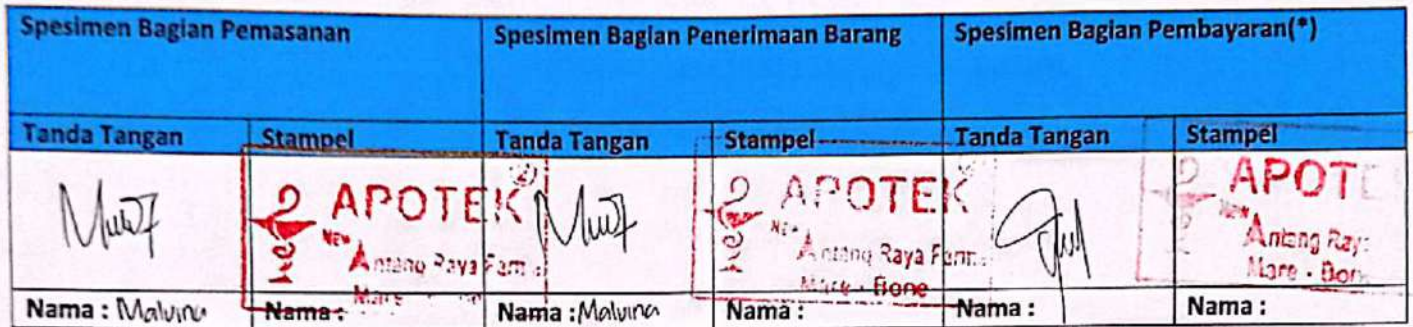 Spesimen Bagian Pemasanan
Spesimen Bagian Penerimaan Barang
Spesimen Bagian Pembayaran(*)
Tanda Tangan
Stampel
Tanda Tangan
Stampel
Tanda Tangan
Stampel
APOTEK
NEW
Antang Raya Farm
Mare
APOTEK
NEW
Antang Raya Farm
Mare - Bone
APOTE
NEW
Antang Ray
Mare - Bon
Nama : Malvina
Nama :
Nama : Malvina
Nama :
Nama :
Nama :